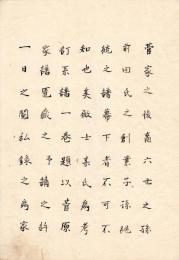 菅家之後裔六世之孫
前田氏之創業子孫繩
統之諸幕下者不可不
知也矣微士某氏爲考
訂系譜一卷題以菅原
家譜寛嚴之予請之許
一日之閲私錄之爲家